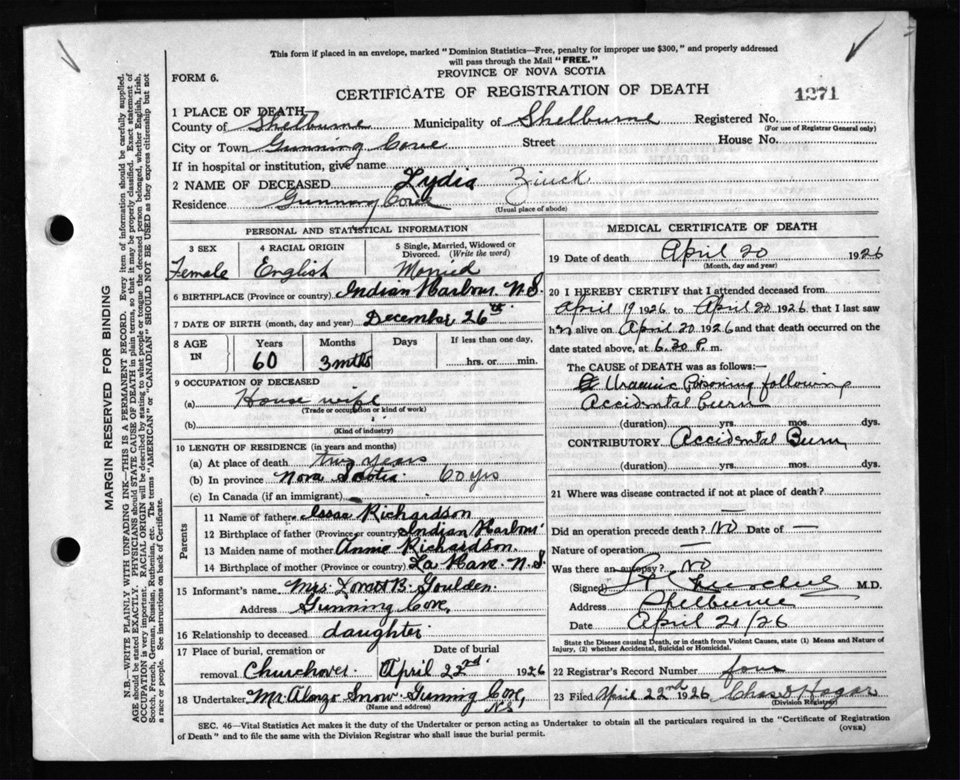 This form if placed in an envelope, marked "Dominion Statistics—Free, penalty for improper use $300," and properly addressed
will pass through the Mail "FREE."
FORM 6.
PROVINCE OF NOVA SCOTIA
CERTIFICATE OF REGISTRATION OF DEATH
1271
1 PLACE OF DEATH
County of Shelburne Municipality of Shelburne Registered No.
(For use of Registrar General only)
City or Town Gunning Cove Street House No.
If in hospital or institution, give name
2 NAME OF DECEASED Lydia Zinck
Residence Gunning Cove
(Usual place of abode)
PERSONAL AND STATISTICAL INFORMATION
3 SEX 4 RACIAL ORIGIN 5 Single, Married, Widowed or
Divorced. (Write the word)
Female English Married
6 BIRTHPLACE (Province or country) Indian Harbour N.S.
7 DATE OF BIRTH (month, day and year) December 26th
8 AGE IN Years Months Days If less than one day,
60 3 mths hrs. or min.
9 OCCUPATION OF DECEASED
(a) House wife
(Trade or occupation or kind of work)
(b)
(Kind of industry)
10 LENGTH OF RESIDENCE (in years and months)
(a) At place of death two years
(b) In province Nova Scotia 60 yrs
(c) In Canada (if an immigrant)
Parents
11 Name of father Isaac Richardson
12 Birthplace of father (Province or country) Indian Harbour
13 Maiden name of mother Annie Richardson
14 Birthplace of mother (Province or country) La Have N.S.
15 Informant's name Mrs. B. Goulden
Address Gunning Cove,
16 Relationship to deceased daughter
17 Place of burial, cremation or Date of burial
removal Churchover April 22nd 1926
18 Undertaker Mr. Alonzo Snow Gunning Cove,
(Name and address) N.S
MEDICAL CERTIFICATE OF DEATH
19 Date of death April 20 1926
(Month, day and year)
20 I HEREBY CERTIFY that I attended deceased from
April 19 1926 to April 20 1926 that I last saw
h alive on April 20 1926 and that death occurred on
date stated above, at 6.30 P. m.
The CAUSE OF DEATH was as follows:—
Uraemic Poisoning following
Accidental Burn
(duration) yrs. mos. dys.
CONTRIBUTORY Accidental Burn
(duration) yrs. mos. dys.
21 Where was disease contracted if not at place of death?
Did an operation precede death? No Date of —
Nature of operation —
Was there an autopsy? No
(Signed) M.D.
Address Shelburne
Date April 21/26
State the Disease causing Death, or in death from Violent Causes, state (1) Means and Nature of
Injury, (2) whether Accidental, Suicidal or Homicidal.
22 Registrar's Record Number four
23 Filed April 22nd 1926 Chas Hagar
(Division Registrar)
SEC. 46—Vital Statistics Act makes it the duty of the Undertaker or person acting as Undertaker to obtain all the particulars required in the "Certificate of Registration
of Death" and to file the same with the Division Registrar who shall issue the burial permit.
(OVER)
MARGIN RESERVED FOR BINDING
N.B.—WRITE PLAINLY WITH UNFADING INK—THIS IS A PERMANENT RECORD. Every item of information should be carefully supplied.
AGE should be stated EXACTLY. PHYSICIANS should STATE CAUSE OF DEATH in plain terms, so that it may be properly classified. Exact statement of
OCCUPATION is very important. RACIAL ORIGIN will be described by stating to what people or tongue the deceased person belonged, whether English, Irish,
Scotch, French, German, Russian, Ruthenian, etc. The terms "AMERICAN" or "CANADIAN" SHOULD NOT BE USED as they express citizenship but not
a race or people. See instructions on back of Certificate.